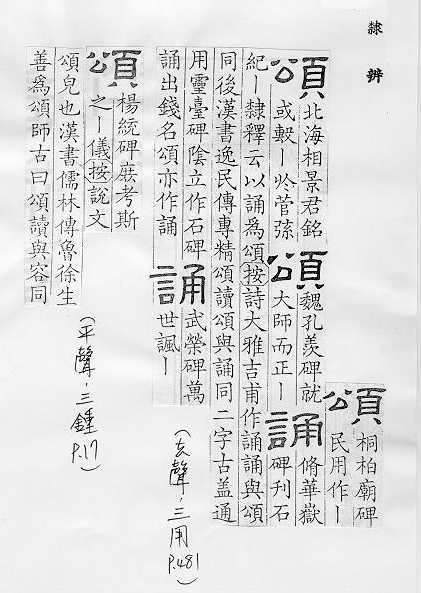 隸 辨
頌
桐柏廟碑
民用作〡
頌
北海相景君銘
或毄〡於管弦
頌
魏孔羨碑就
大師而正〡
誦
脩華嶽
碑刊石
紀〡隸釋云以誦爲頌按詩大雅吉甫作誦誦與頌
同後漢書逸民傳專精頌讀頌與誦同二字古盖通
用靈臺碑陰立作石碑
誦出錢名頌亦作誦
誦
武榮碑萬
世諷〡
(去聲·三用 P.481)
頌
楊統碑庶考斯
之〡儀按說文
頌皃也漢書儒林傳魯徐生
善爲頌師古曰頌讀與容同
(平聲·三鍾 P.17)